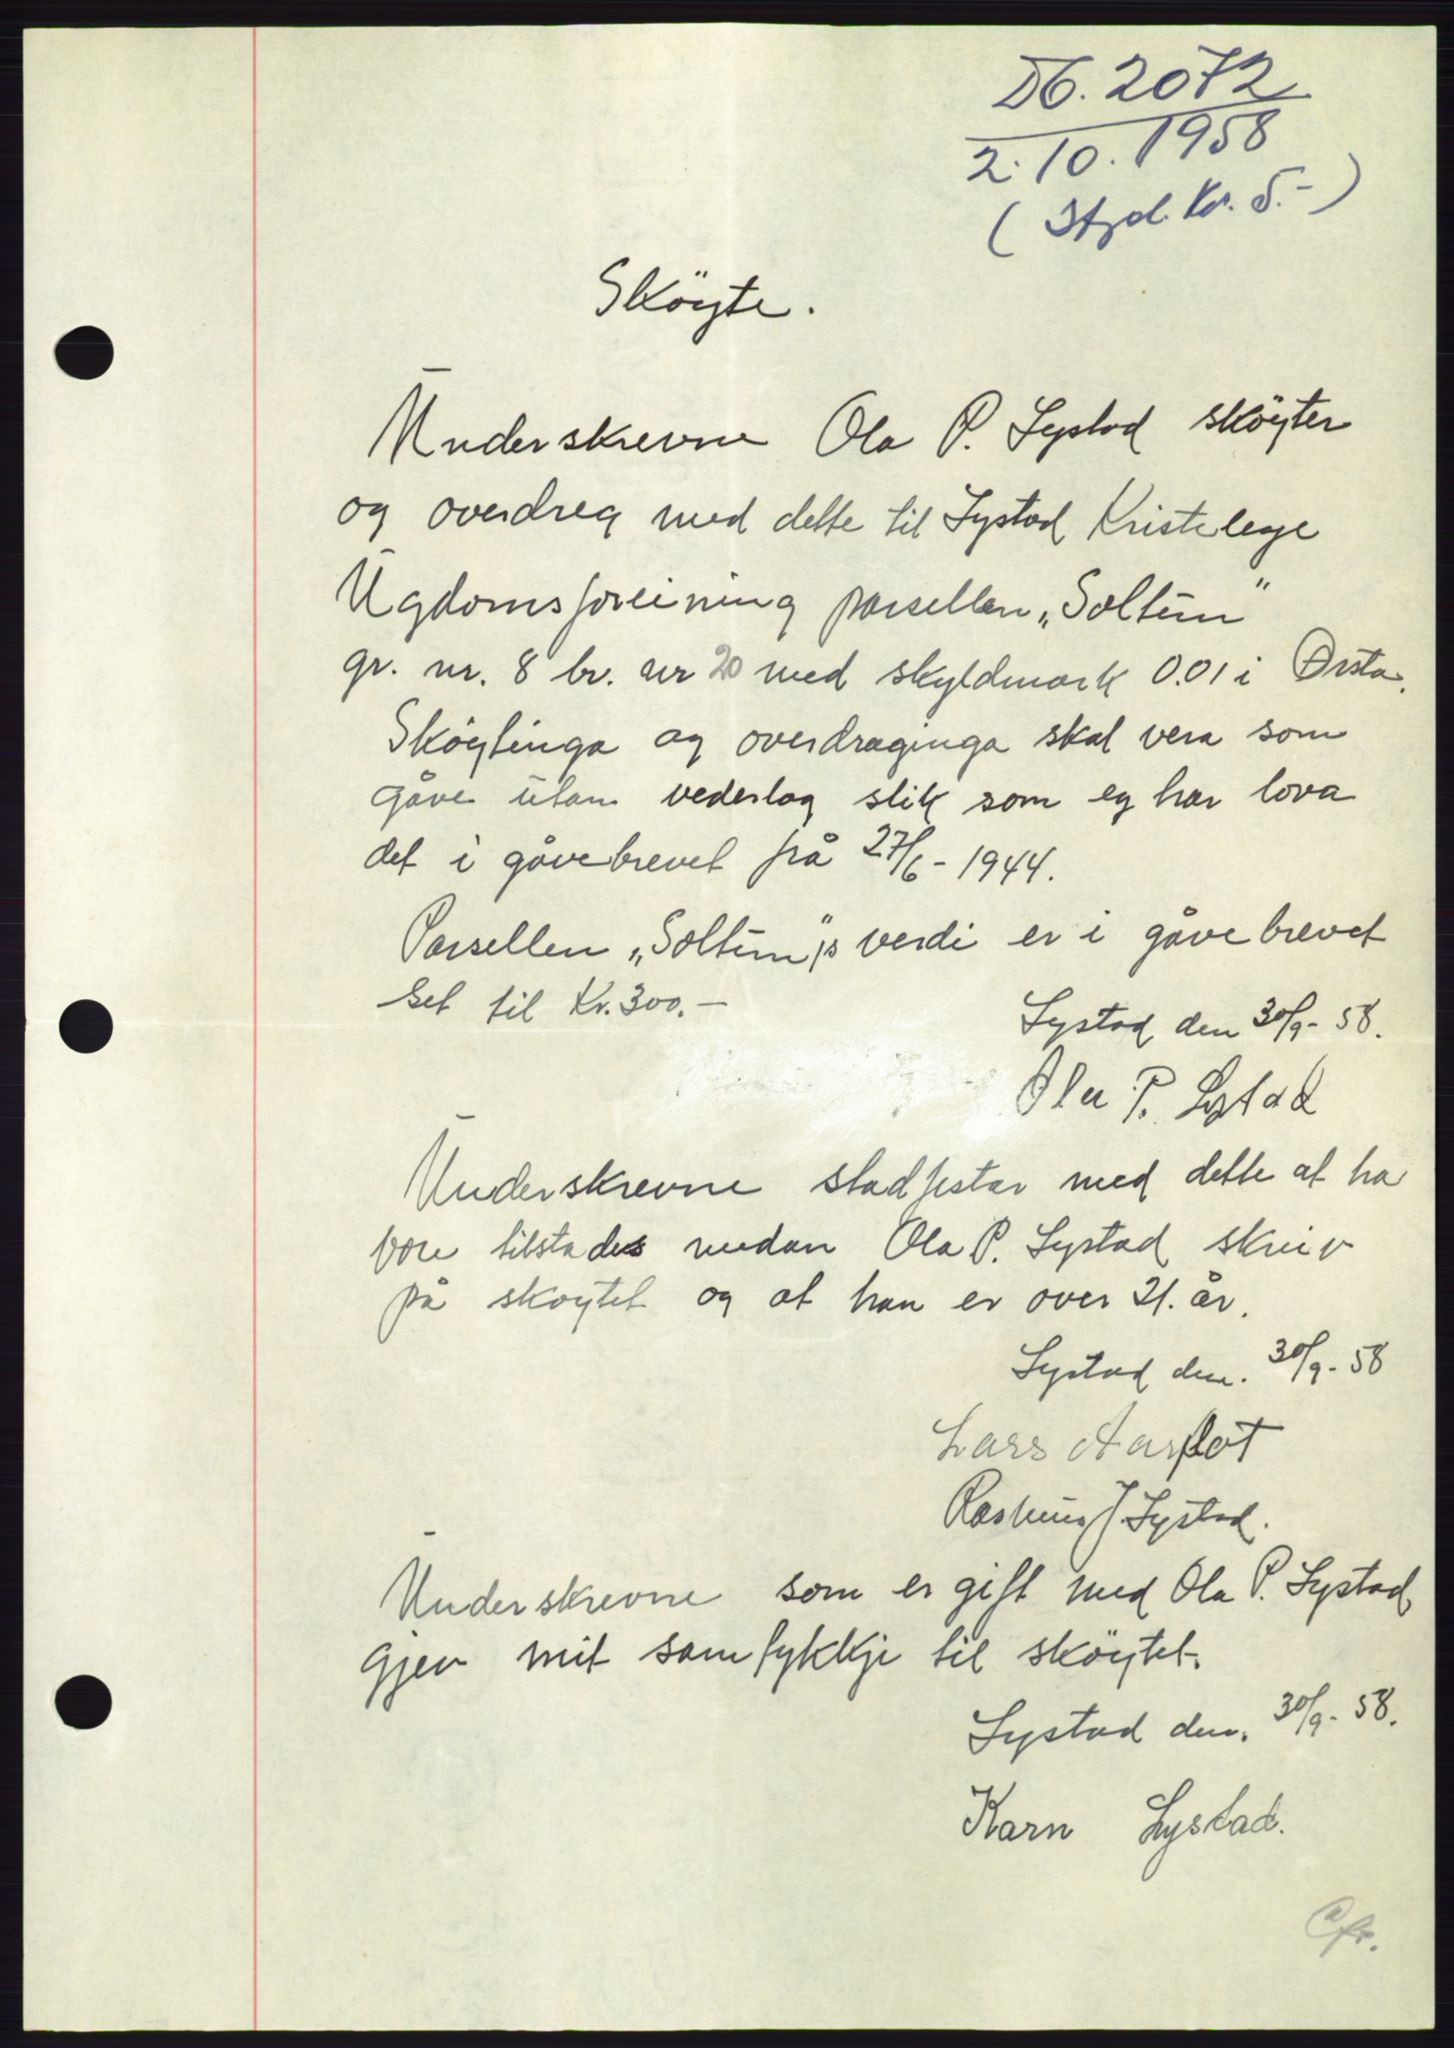 Db. 2072
2.10.1958
( Stpd. Kr. 5.- )
Sköyte.
Underskrevne Ola P. Systad sköyter
og overdreg med dette til Systad Kristelege
Ugdomsforeining parsellen „Soltun"
gr. nr. 8 br. nr 20 med skyldmark 0.01 i Ørsta.
Sköytinga og overdraginga skal vera som
gåve utan vederlag slik som eg har lova
det i gåvebrevet frå 27/6 - 1944.
Parsellen „Soltun"s verdi er i gåvebrevet
set til Kr. 300.-
Systad den 30/9- 58.
Ola P. Systad
Underskrevne stadfestar med dette at ha
vore tilstades medan Ola P. Systad skreiv
på skoytet og at han er over 21. år.
Systad den. 30/9- 58
Lars Aarflot
Rasmus J. Systad.
Underskrevne som er gift med Ola P. Systad
gjev mit samtykkje til sköytet.
Systad den. 30/9- 58.
Karn Systad.